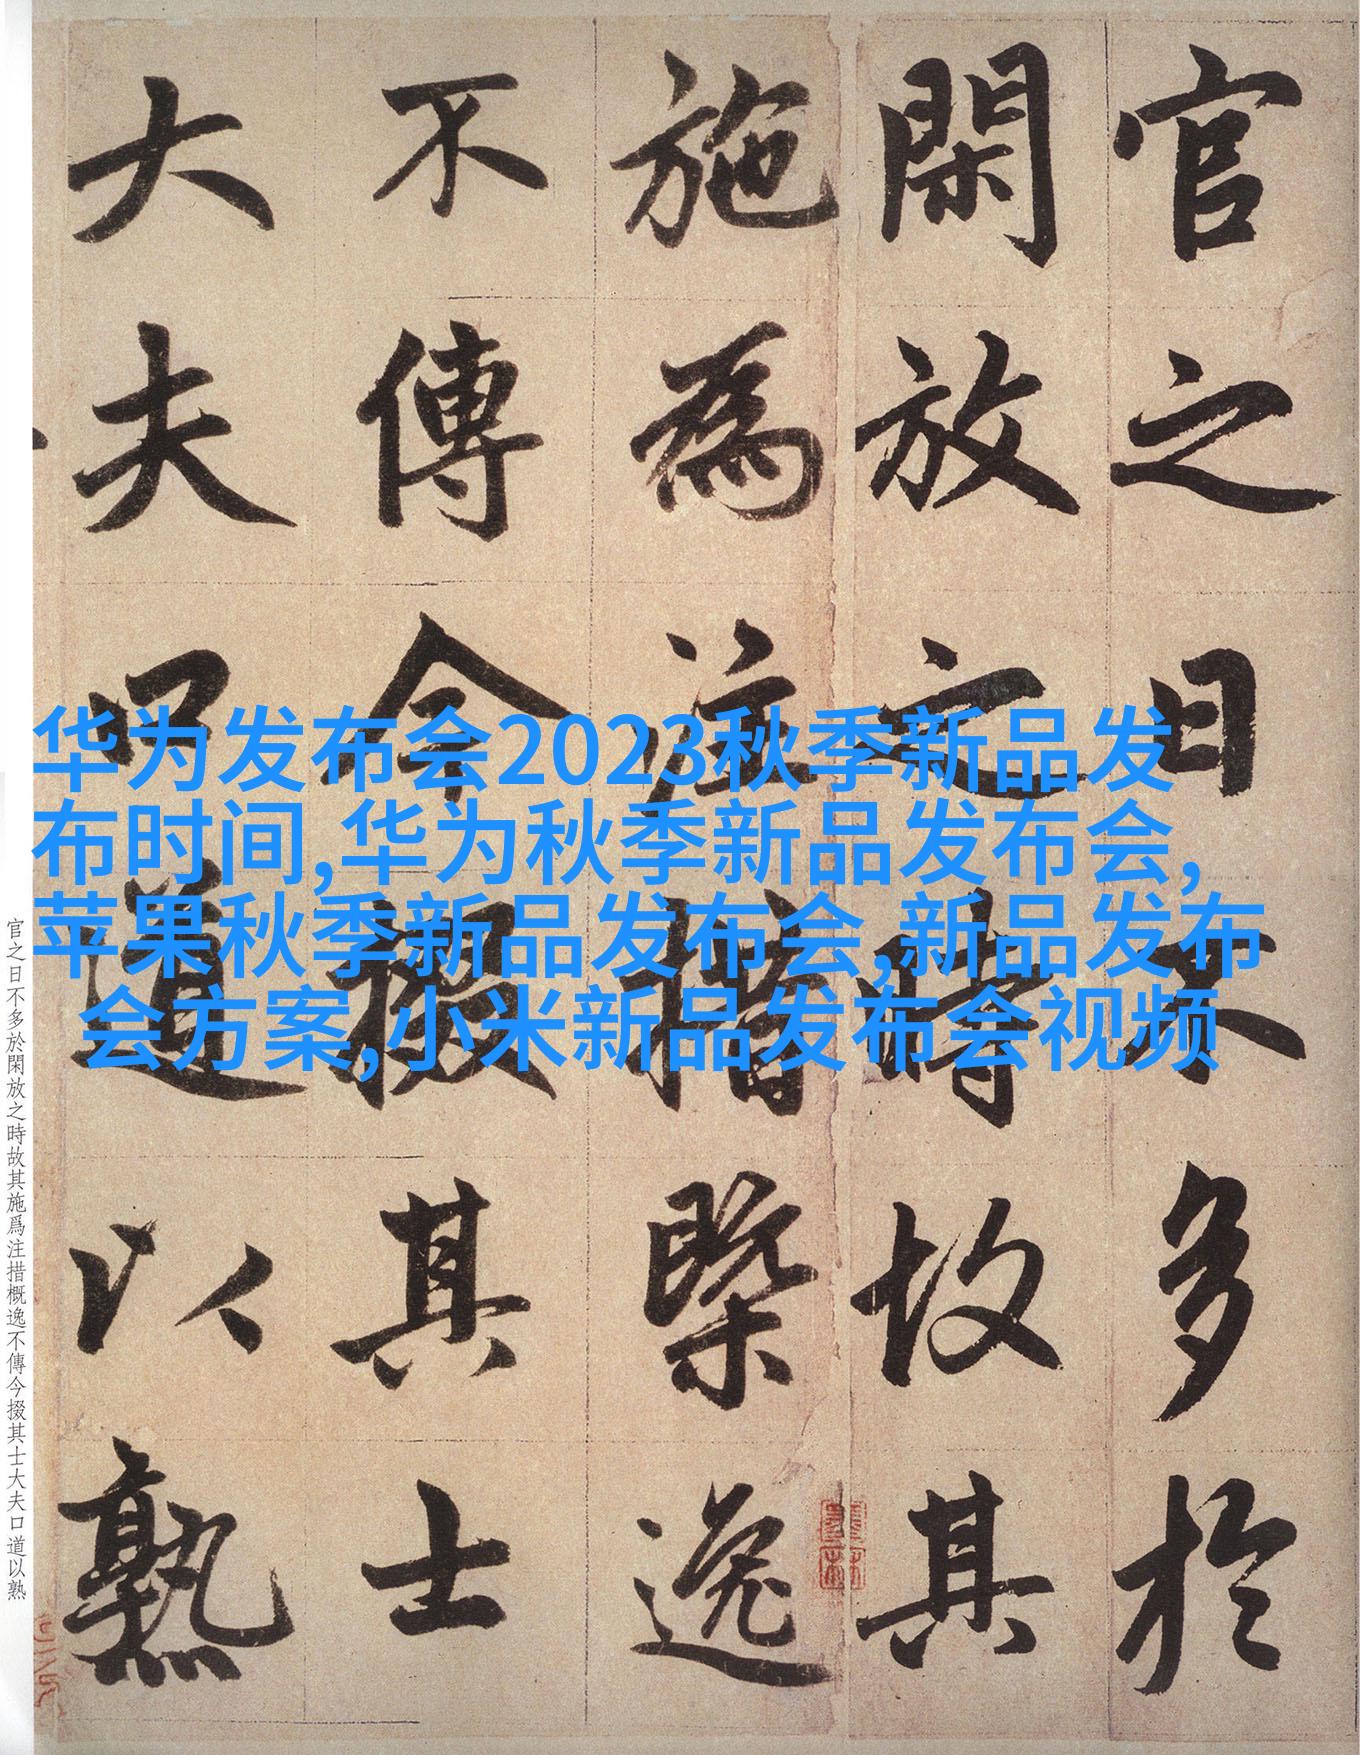 官之日不多於
閑放之時故其
施為注措槩逸
不傳今掇其士
大夫口道以熟
华为发布会2023秋季新品发
布时间,华为秋季新品发布会,
苹果秋季新品发布会,新品发布
会方案,小米新品发布会视频
官之日不多於閑放之時故其施爲注措概逸不傳今掇其士大夫口道以熟